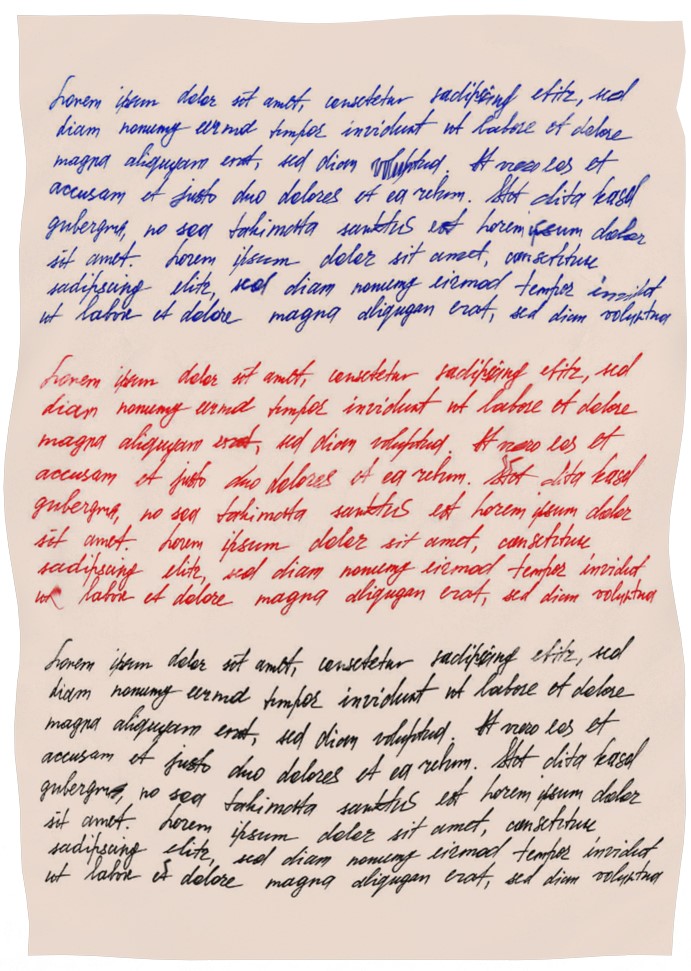 Lorem ipsum dolor sit amet, consetetur sadipscing elitr, sed
diam nonumy eirmod tempor invidunt ut labore et dolore
magna aliquyam erat, sed diam voluptua. At vero eos et
accusam et justo duo dolores et ea rebum. Stet clita kasd
gubergren, no sea takimata sanktus est Lorem ipsum dolor
sit amet. Lorem ipsum dolor sit amet, consetetur
sadipscing elitr, sed diam nonumy eirmod tempor invidut
ut labore et dolore magna aliquyan erat, sed diam voluptua
Lorem ipsum dolor sit amet, consetetur sadipscing elitr, sed
diam nonumy eirmod tempor invidunt ut labore et dolore
magna aliquyam erat, sed diam voluptua. At vero eos et
accusam et justo duo dolores et ea rebum. Stet clita kasd
gubergren, no sea takimata sanktus est Lorem ipsum dolor
sit amet. Lorem ipsum dolor sit amet, consetetur
sadipscing elitr, sed diam nonumy eirmod tempor invidut
ut labore et dolore magna aliquyan erat, sed diam voluptua
Lorem ipsum dolor sit amet, consetetur sadipscing elitr, sed
diam nonumy eirmod tempor invidunt ut labore et dolore
magna aliquyam erat, sed diam voluptua. At vero eos et
accusam et justo duo dolores et ea rebum. Stet clita kasd
gubergren, no sea takimata sanktus est Lorem ipsum dolor
sit amet. Lorem ipsum dolor sit amet, consetetur
sadipscing elitr, sed diam nonumy eirmod tempor invidut
ut labore et dolore magna aliquyan erat, sed diam voluptua